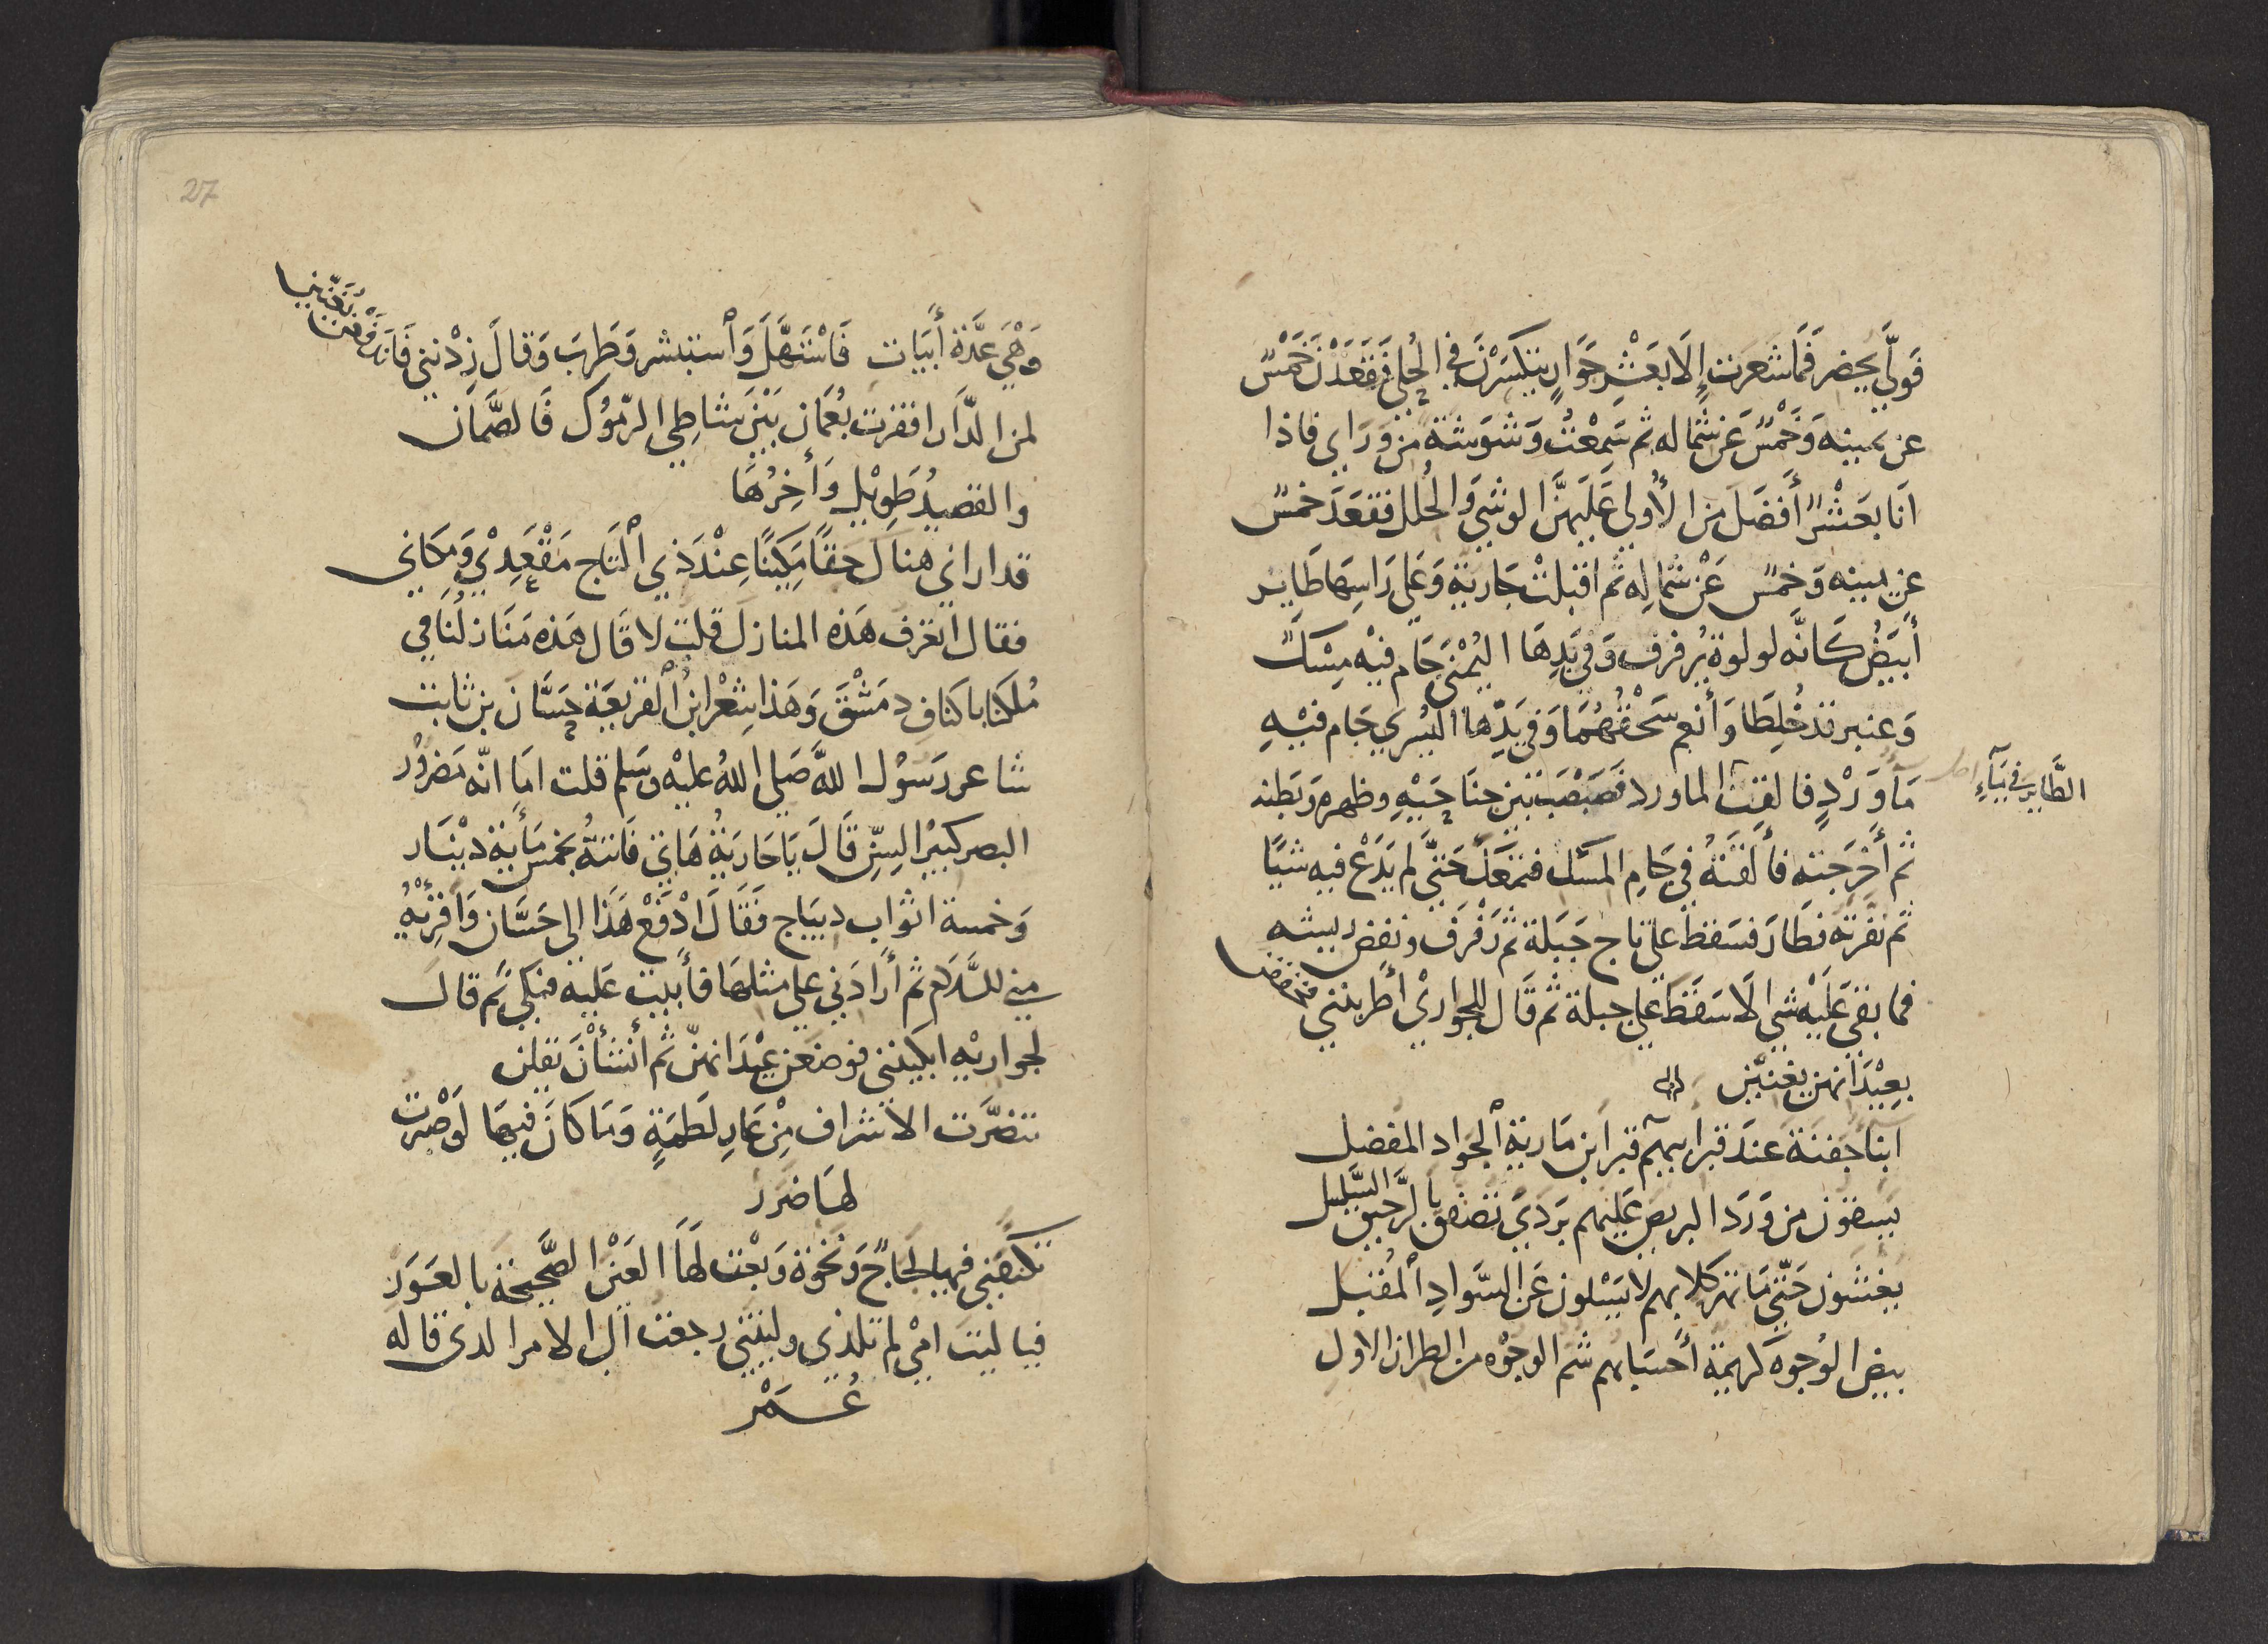 فَوَلَّي يحضر فَمَا شعَرت إِلَا بعَشْرِ جَوَارٍ يتكسَّرْنَ في الحُلي فَقَعَدْنَ خَمْسٌ
عن يمينه وَخَمْسٌ عَن شمَاله ثم سَمِعْتُ وَشوَشةً من وَرَاي فاذا
انَا بعَشْرٍ أَفضَلَ من الأُولي عَلَيهنَّ الوشي وَالحُلل فقعَدَ خمسٌ
عن يمينه وَخمسٌ عَنْ شمَالِه ثم اقبلتْ جَارية وَعَلي رَاسِهَا طَاير
أَبيَضُ كَانَّه لولوة يُرفرف وَفي يَدِهَا اليُمْني جَام فيْه مِسْكٌ
وَعنبر قد خُلِطَا وَأنعم سَحْقُهُمَا وَفي يَدِهَا اليُسْري جَام فيْهِ
مَآوَرْدٍ فالقت الطَّاير في مَآءِ الماورد فَصَبْصَبَ بين جنَاحَيْهِ وظهره وَبَطنه
ثم أَخرَجَته فأَلقَتهُ في جَامِ المسْك فتمَعَّك حَتَّي لم يَدَعْ فيه شيًا
ثم نفرته فطَارَ فسَقَط علي تاج جَبَلة ثم رَفرَف ونفض ريشه
فما بقي عَلَيْه شي الَا سَقَطَ علي جبلة ثم قَال للجواريْ أَطربنني فخفضن
بِعِيْدَانهن يغنيْن
ابنآ جَفنَة عندَ قبر ابيهم قبر ابن مَارية الجَواد المفضل
يَسقون من وَرَدَ البريص عَلَيهم بَرَدي تصَفق بالرَّحيق السَّلسل
يغشَون حَتَّي مَا تهر كلابهم لا يَسْلون عَن السَّوادِ المُقبل
بيض الوُجوه كَريمة أَحسَابهم شم الوجُوه من الطراز الاول
27
وَهْيَ عدَّة أَبيَات فَاسْتَهَلَّ وَاستبشر وَطَرِبَ وَقالَ زِدْنني فَانَدفعْن يُغنّينَ
لمن الدَّار اقفرت بمَعَان بَيْنَ شاطِي اليرموُك فَالصَّمَّان
والقصيْدُ طَوِيْل وَأَخِرُهَا
قد اراني هناك حَقًّا مَكِيْنًا عِنْدَ ذي التَّاج مَقْعَدِيْ وَمَكَاني
فقال أتعرف هَذه المنازل قلت لا قَال هَذه مَنَازلُنَا في
مُلكنَا باكنَافِ دمَشْقَ وَهَذا شِعْر ابن الفريعَة حَسَّان بن ثابت
شاعر رَسوُل اللهِ صَلي اللهُ عليْهِ وسَلم قلت امَا انّه مَضروُر
البصر كَبيرُ السِّن قَالَ يَا جَاريَةُ هَاتي فَاتتهُ بخمس مَايَة ديْنَار
وَخمسة اثوَاب ديبَاج فَقَالَ ادْفَعْ هَذا الي حَسَّان وَاقرِيْهُ
مني السَّلام ثم أَرَادَني علي مثلها فأَبيت عَليه فبَكي ثم قالَ
لجواريْهِ ابكينني فوضعن عِيْدَانهنّ ثم أنشَأْنَ يَقلن
تنصَّرَت الاشراف مِنْ عَارِ لَطمَةٍ وَمَا كَانَ فيهَا لوَ صَبرت
لهَا ضرَر
تَكَنَّفَني فيهَا لجَاجٌ وَنَخْوَة وَبعْت لهَا العَيْن الصَّحيحَة بالعَوَر
فيا ليتَ امّي لم تلدني وليتني رجعت الي الامر الذي قاله
عُـمَـرْ